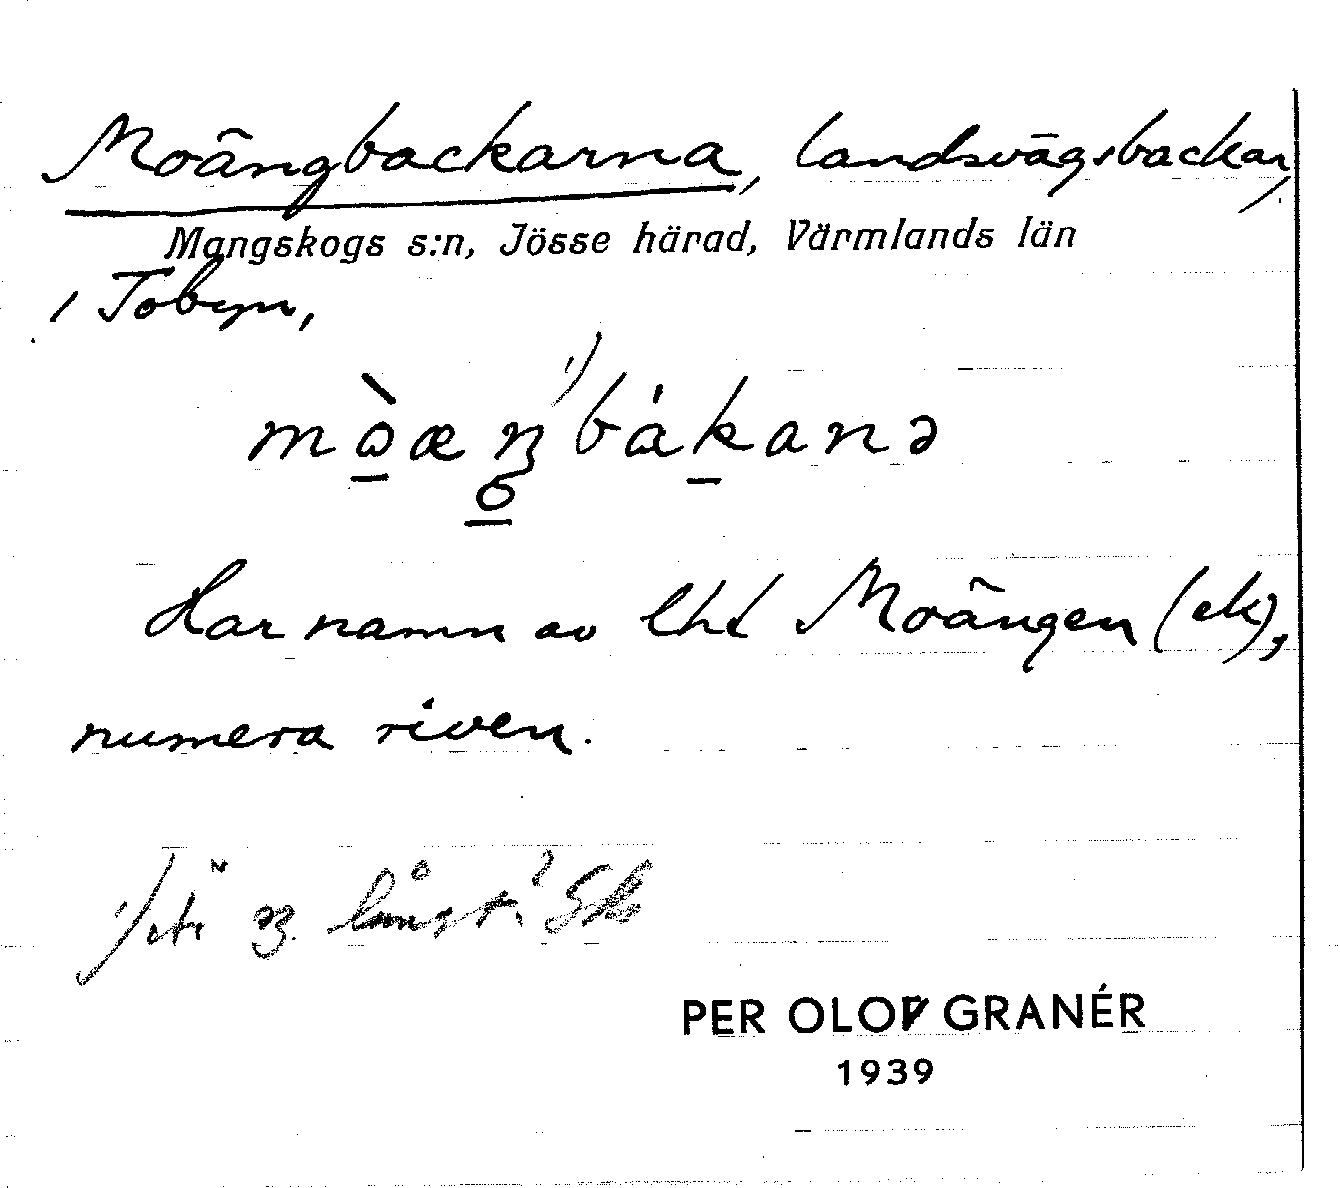 Moängbackarna, landsvägsbackar,
Mangskogs s:n, Jösse härad, Värmlands län
i Tobyn,
Har namn av lht Moängen (ek),
numera riven.
PER OLOV GRANÉR
1939